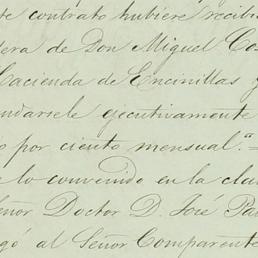 te contrato hubiere recibi
dera de Don Miguel Co
hacienda de Encinillas y
mandarsele ejecutivamente
o por ciento mensual.ª =
e lo convenido en la cla
eñor Doctor D. José Pa
gó al Señor Comparente